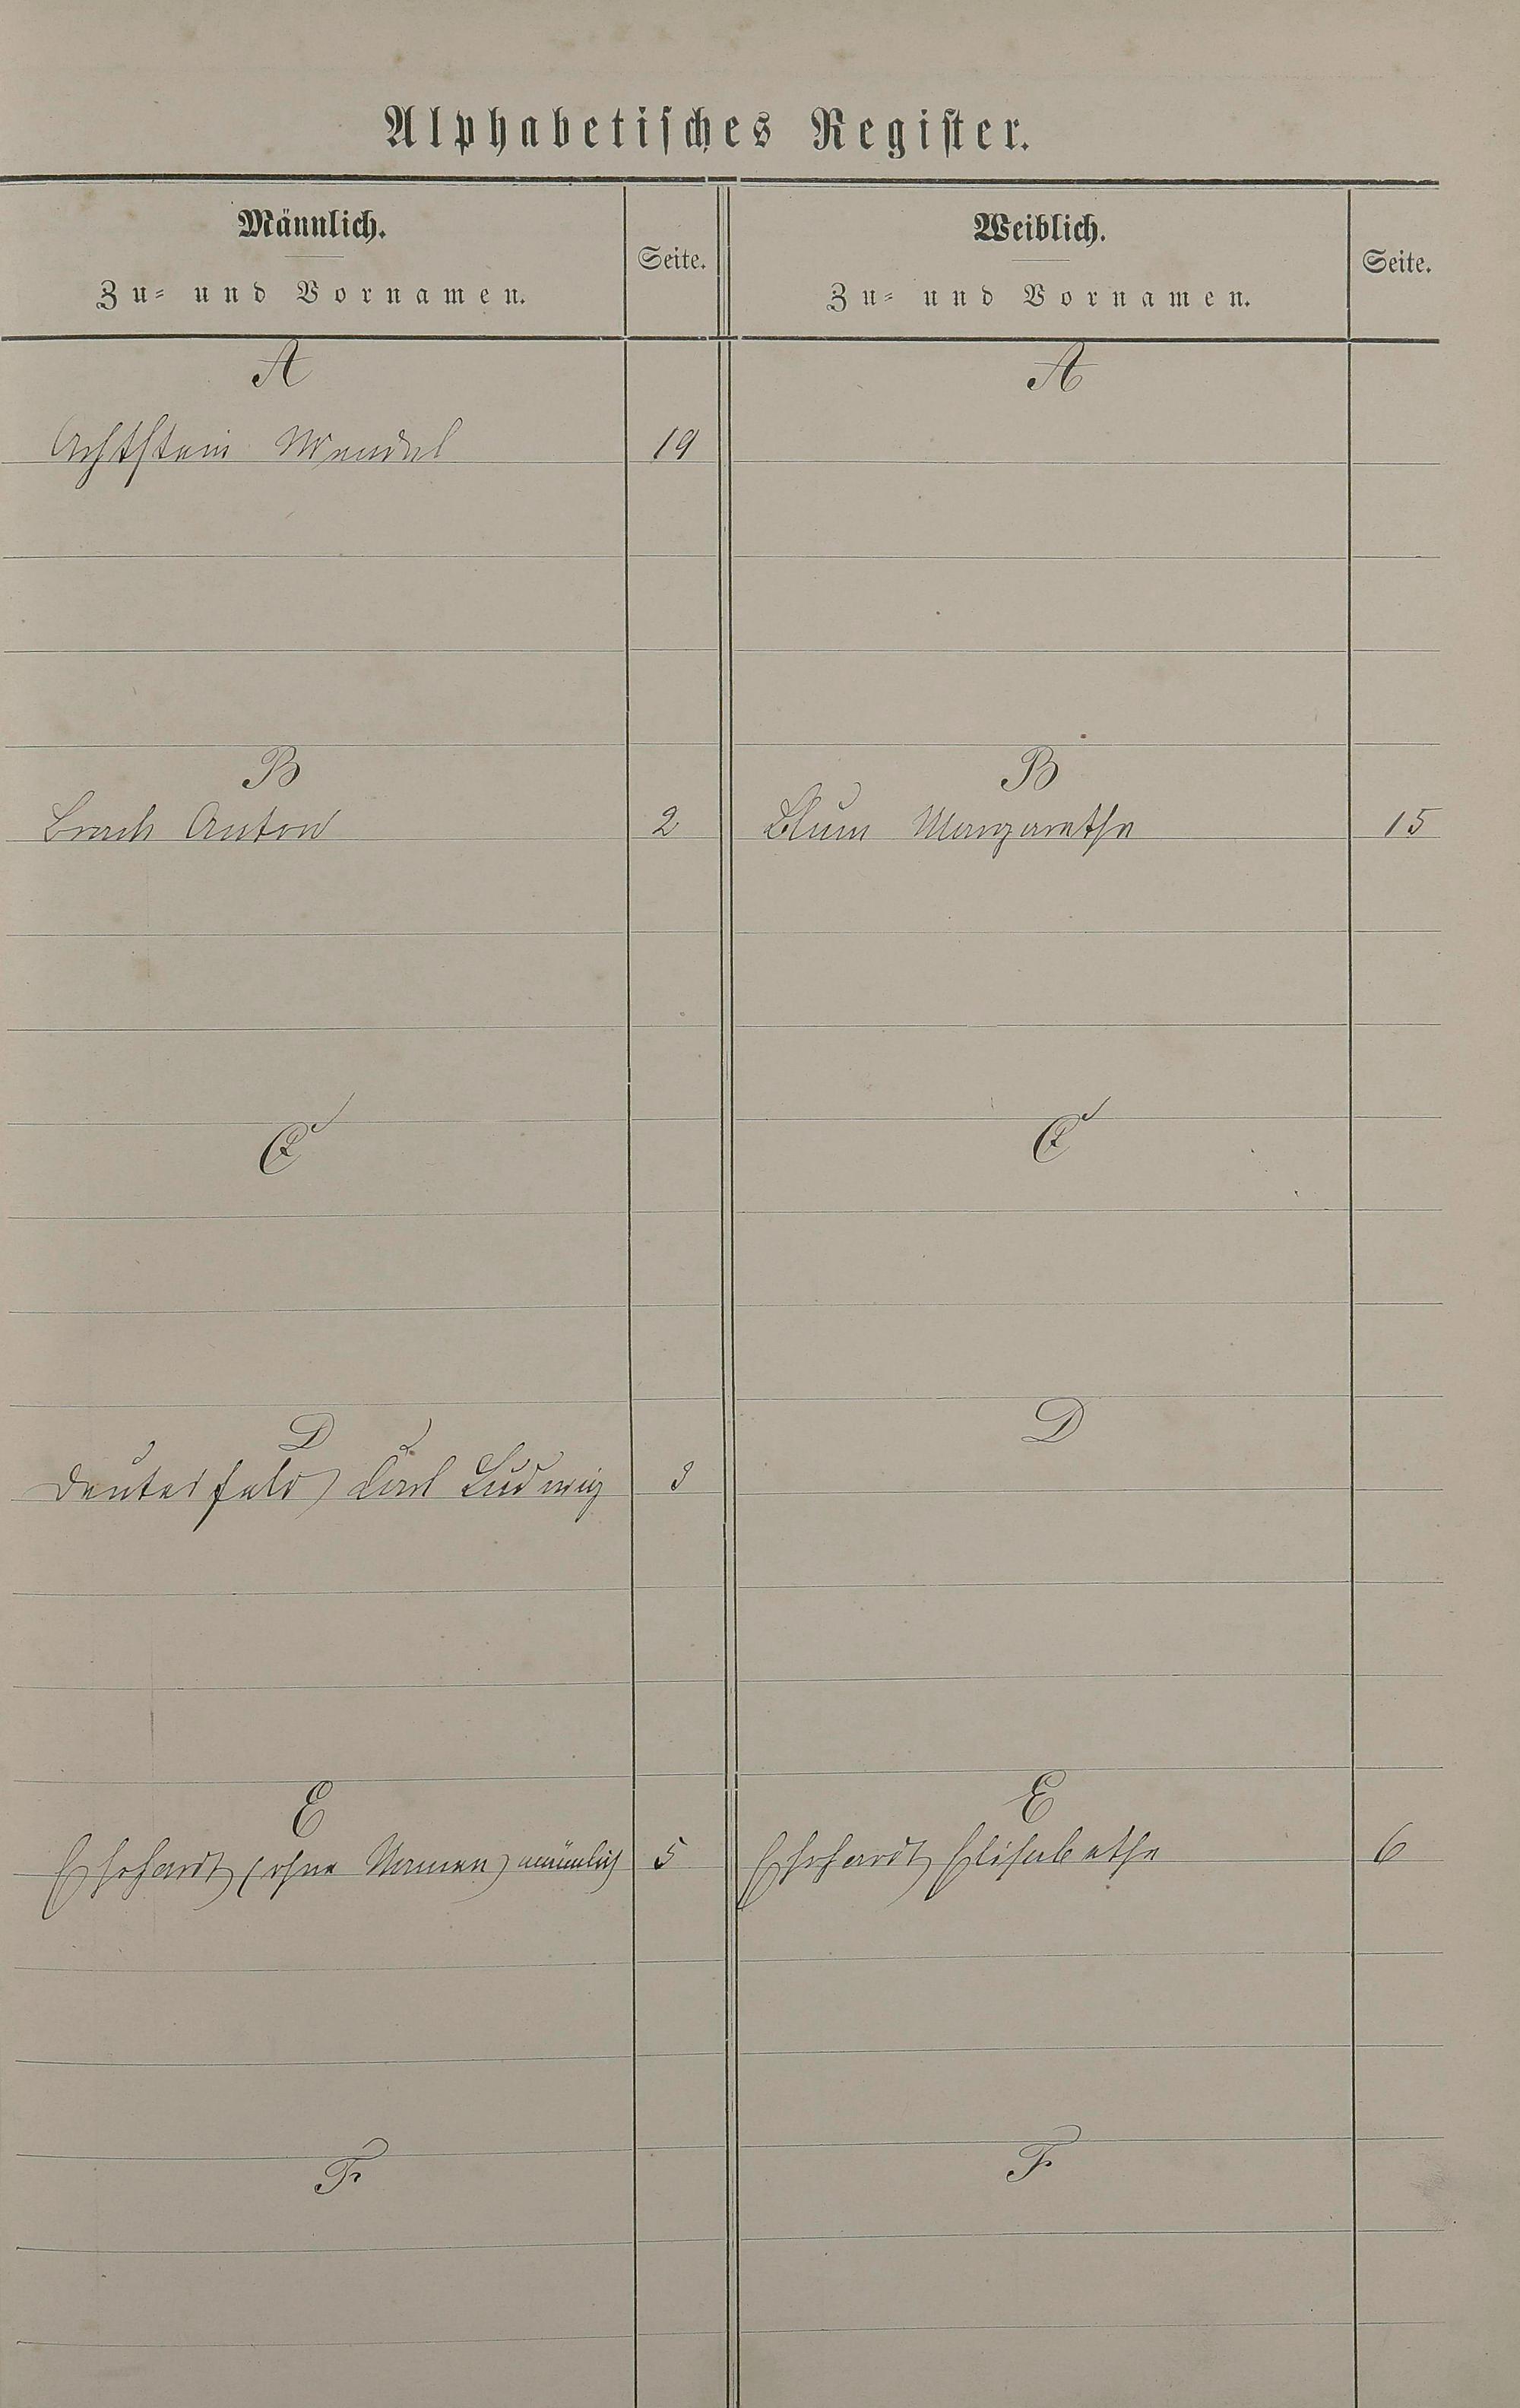 Alphabetisches Register.
Männlich.
Zu- und Vornamen.
Seite.
Weiblich.
Zu- und Vornamen.
Seite.
A
A
Achtstein Mendel
19
B
B
Brach Anton
2
Blum Margarethe
15
C
C
D
D
Deuterfeld Carl Ludwig
3
E
E
Ehrhardt (ohne Namen) männlich
5
Ehrhardt Elisabethe
6
F
F